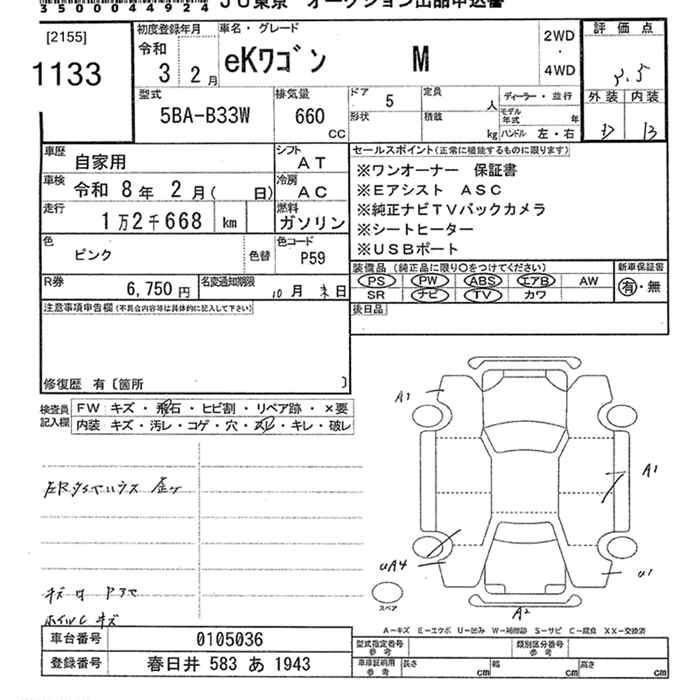 35000044924 JU東京 オークション出品申込書
[2155]
1133
初度登録年月
令和
3 2月
車名・グレード
eKワゴン M
2WD
・
4WD
評価点
3.5
外装 内装
D B
型式
5BA-B33W
排気量
660
CC
ドア 5
形状
定員 人
積載 kg
ディーラー・並行
モデル年式 年
ハンドル 左・右
車歴
自家用
シフト
AT
車検
令和 8年 2月( 日)
冷房
AC
走行
1万2千668 km
燃料
ガソリン
色
ピンク
色替
色コード
P59
R券
6,750円
名変通知期限
10月末日
セールスポイント(正常に機能するものに限ります)
※ワンオーナー 保証書
※Eアシスト ASC
※純正ナビTVバックカメラ
※シートヒーター
※USBポート
装備品(純正品に限り○をつけてください)
PS PW ABS エアB AW
SR ナビ TV カワ
新車保証書
有・無
後日品
注意事項申告欄(不具合内容等は具体的に記入して下さい)
修復歴 有〔箇所 〕
検査員
記入欄
FW キズ・飛石・ヒビ割・リペア跡・×要
内装 キズ・汚レ・コゲ・穴・スレ・キレ・破レ
キズ
ホイルC キズ
A1
A1
UA4
U1
A2
スペア
A−キズ E−エクボ U−凹み W−補修跡 S−サビ C−腐食 XX−交換済
車台番号 0105036
登録番号 春日井 583 あ 1943
型式指定番号
参考
類別区分番号
参考
車庫証明用
参考
長さ cm 幅 cm 高さ cm